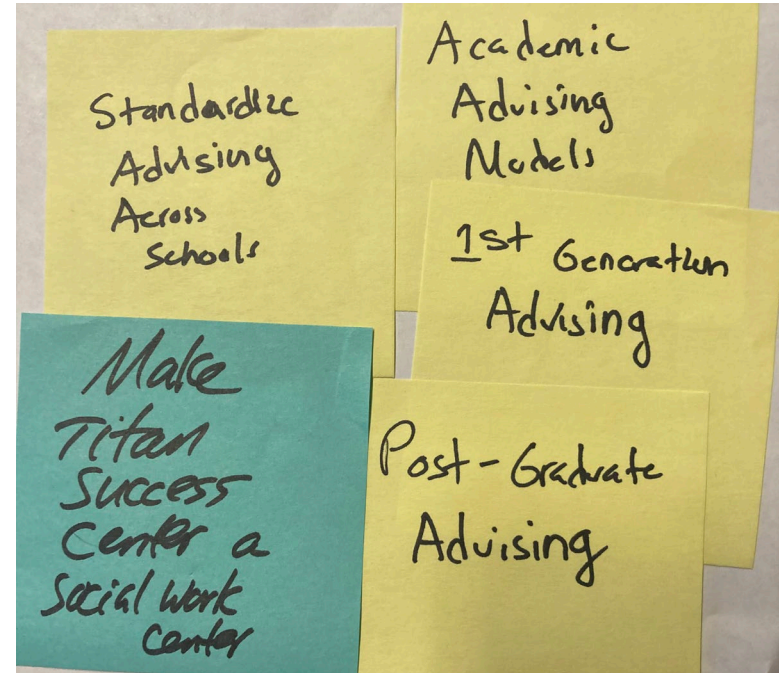 Standardize
Advising
Across
Schools
Academic
Advising
Models
1st Generation
Advising
Make
Titan
Success
Center a
Social Work
Center
Post-Graduate
Advising